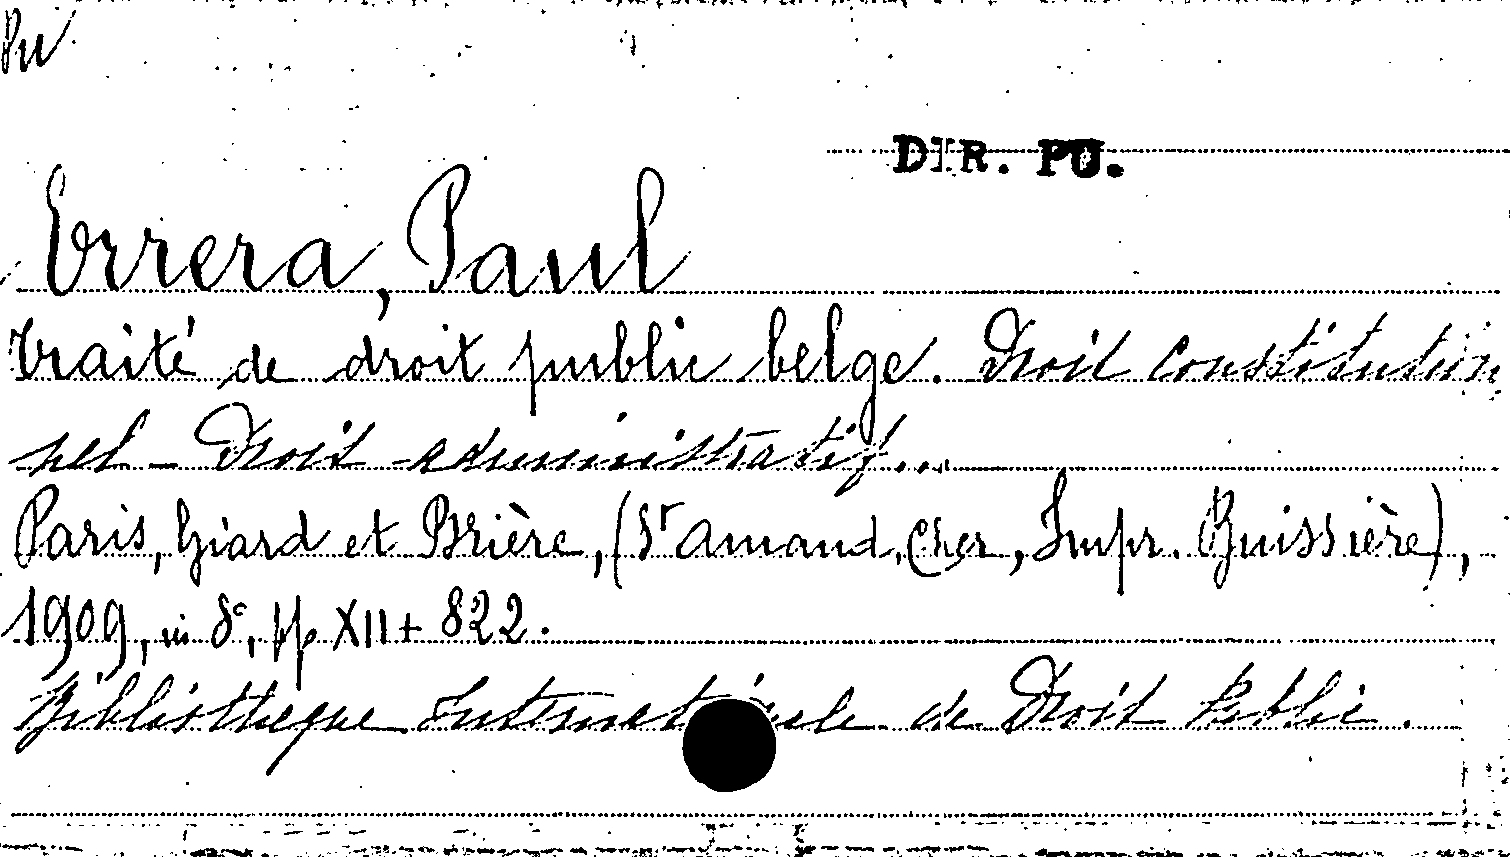 Pu
DIR. PU.
Errera, Paul
Traité de droit public belge. Droit constitution
nel - Droit administratif...
Paris, Giard et Brière, (St Amand, Cher, Impr. Buissière),
1909, in 8°, pp XII + 822.
Bibliothèque Internationale de Droit Public.